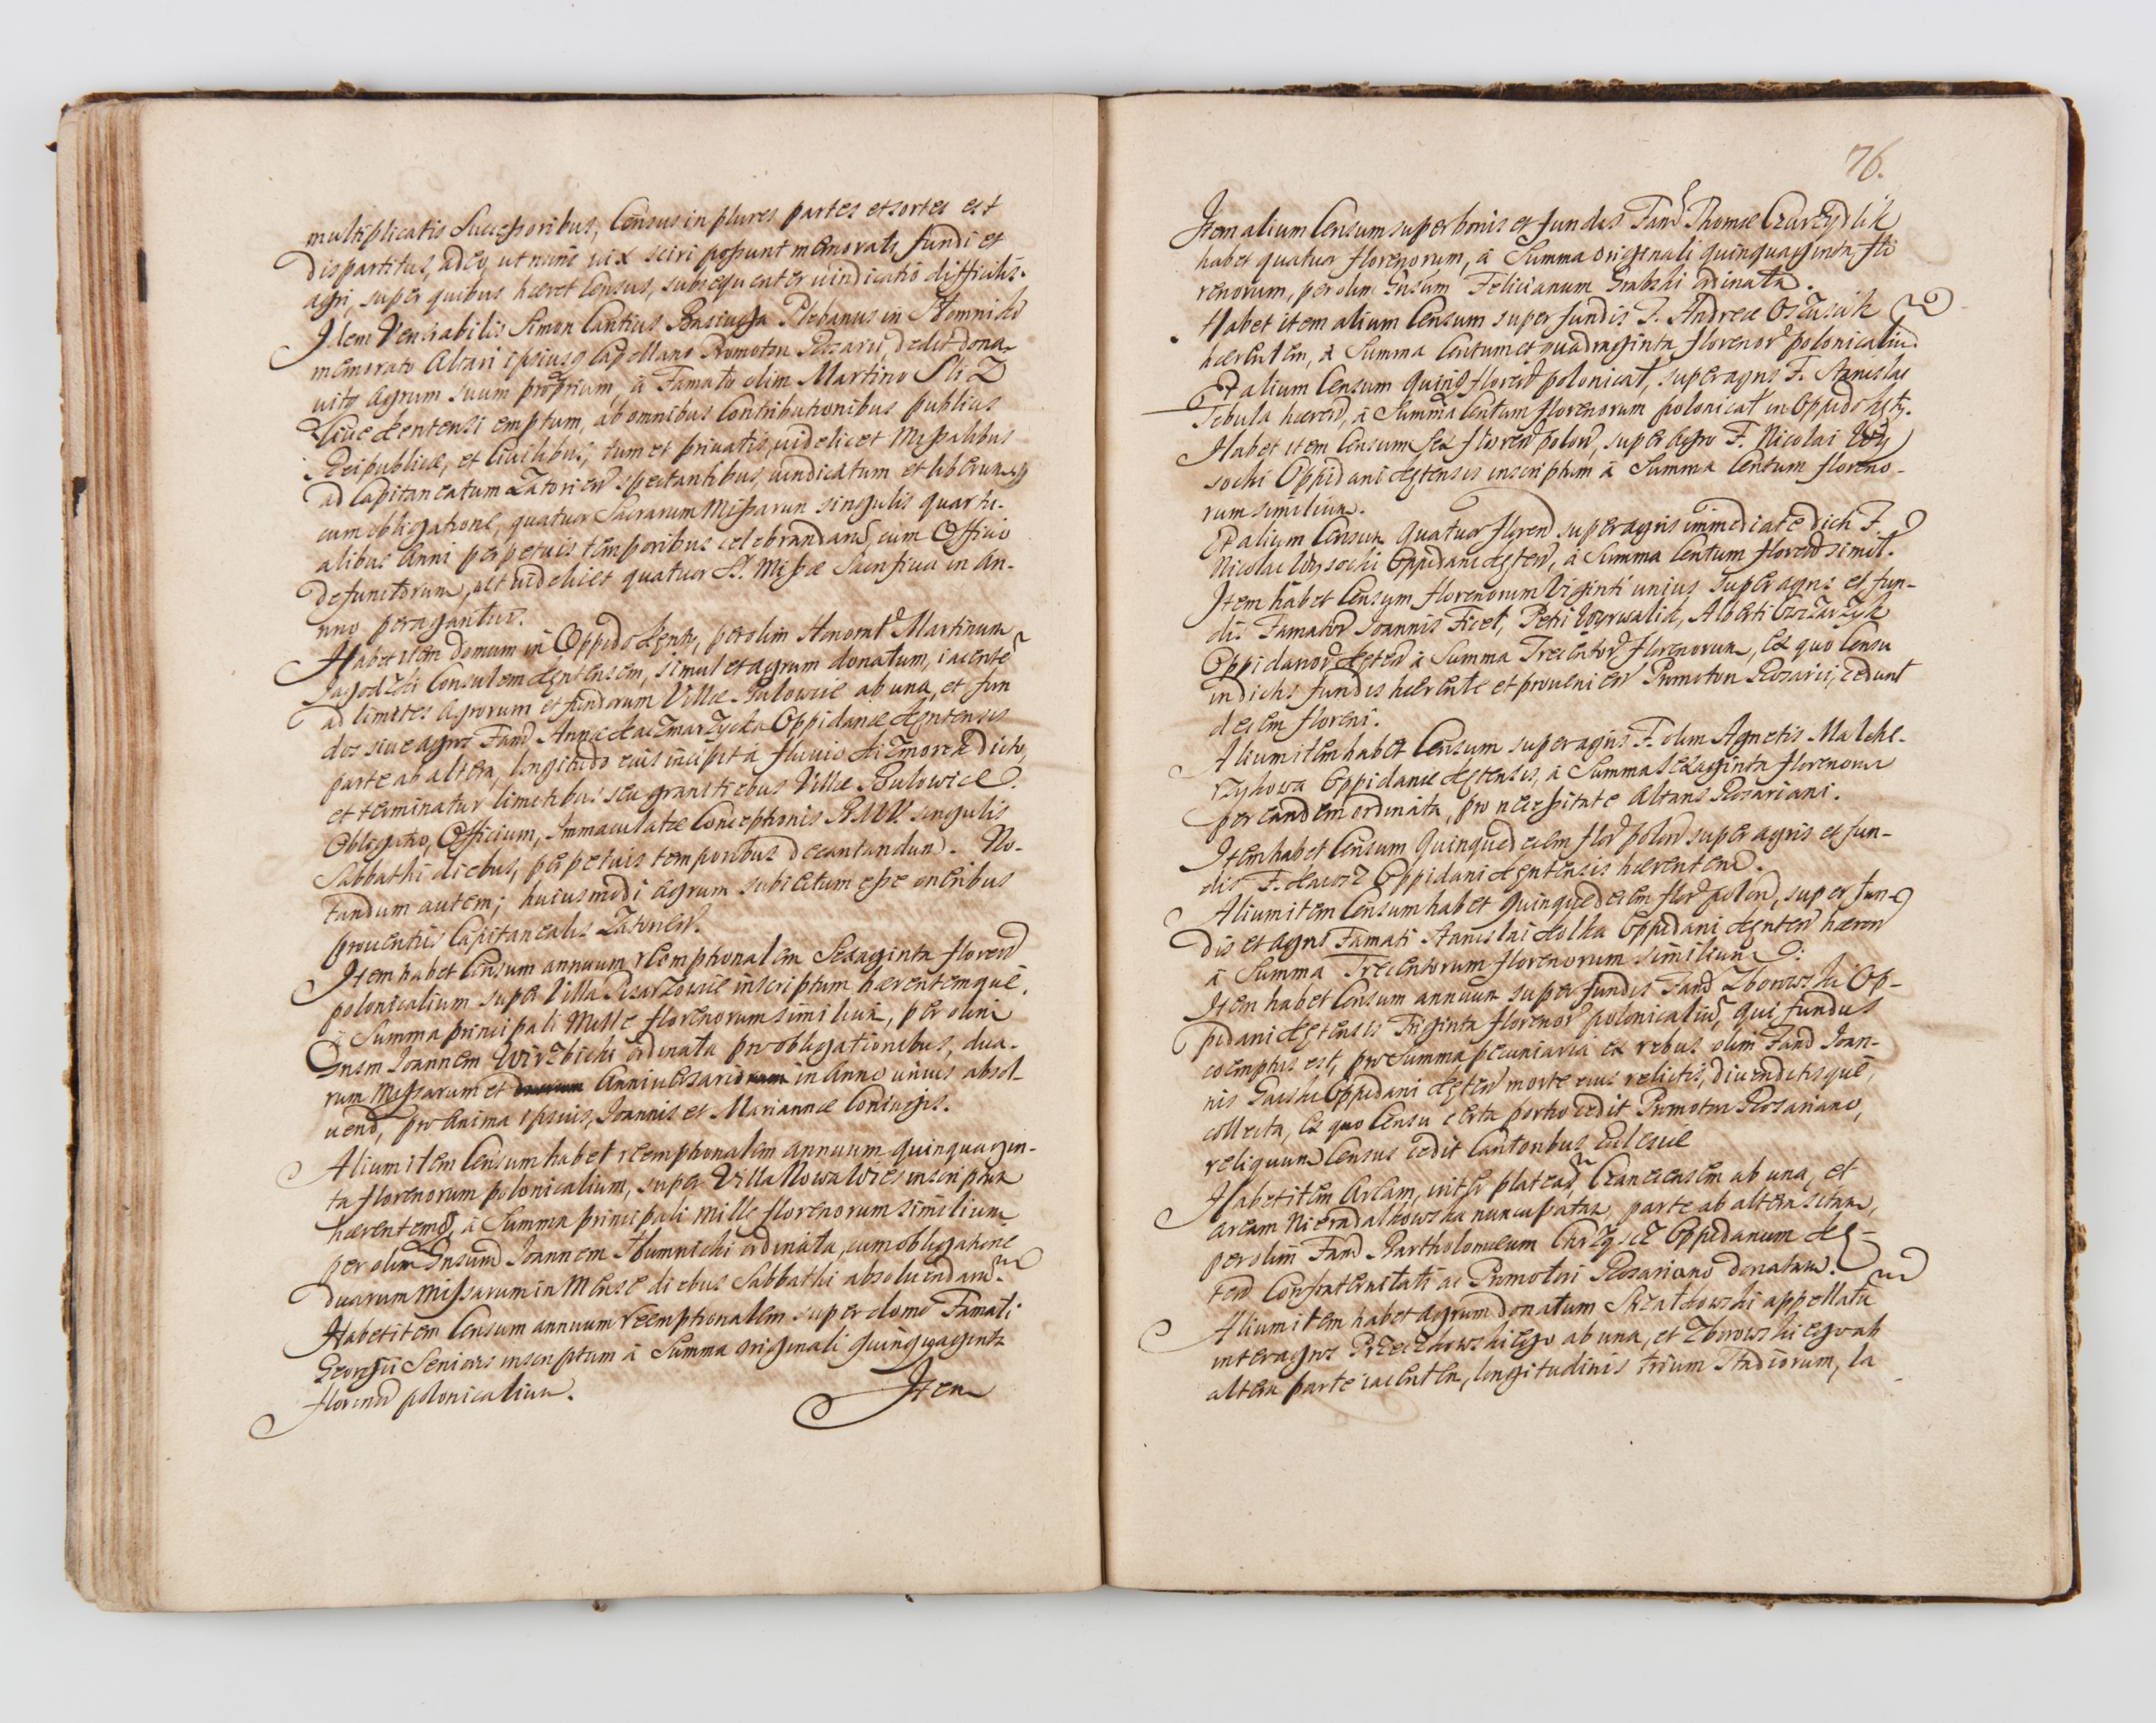 multiplicatis Successoribus, Census in plures partes et sortes est
dispartitus, adeo, ut nunc vix sciri possunt memorati, fundi et
agri, super quibus hæret Census, subsequenter vindicatio difficilis.
Idem Venerabilis Simon Cantius Plebanus in
memorato Altari ipsiusq Capellano Promotori Rosarii, dedit dona-
vitq agrum suum proprium, à Famato olim Martino
Cive Kentensi emptum, ab omnibus Contributionibus publicis
Reipublicæ, et Civilibus, tum et privatis, videlicet Missalibus
ad Capitaneatum Zatorien spectantibus, vindicatum et liberum,
cum obligatione, quatuor Sacrarum Missarum singulis quartu-
alibus Anni perpetuis temporibus celebrandaru, cum Officio
defunctorum, alt videlicet quatuor S. Missæ Sacrificia in An-
no peragantur.
Habet item domum in Oppido Kenty, per olim Honorat Martinum
Jagodzki Consulem Kentensem, simul et agrum donatum, iacente
ad limites Agrorum et fundorum Villæ Bulowice ab una, et fun
dos sive agros Fam Annæ Kaczmarzycka Oppidanæ Kentensis
parte ab altera, longitudo eius incipit à fluvio dicto,
et terminatur limitibus seu granitiebus Villæ Bulowice.
Obligatio, Officium, Immaculatæ Conceptionis BMV singulis
Sabbathi diebus, perpetuis temporibus decantandum. No-
tandum autem; huiusmodi agrum subiectum esse oneribus
proventus Capitanealis Zatorien.
Item habet Censum annuum reemptionalem Sexaginta floren
polonicalium super Villa Pisarzowice inscriptum hærentemque,
à Summa principali Mille florenorum similium, per olim
Gnsm Joannem Wirzbicki ordinata pro obligationibus, dua-
rum Missarum et Anniversariorum in Anno unius absol-
vend, pro Anima ipsius, Joannis et Mariannæ Coniugis.
Alium item Censum habet reemptionalem annuum quinquagin-
ta florenorum polonicalium, super Villa Nowawies inscriptum
hærentemq, à Summa principali mille florenorum similium
per olim Gnsum Joannem ordinata, cum obligatione
duarum Missarum in Mense diebus Sabbathi absolvendaru.
Habet item Censum annuum reemptionalem super domo Famati
Georgii Senioris inscriptum à Summa originali quinquaginta
floren polonicalium.
Item
76.
Item alium Censum super bonis et fundis Fam Thomæ
habet quatuor florenorum, à Summa originali quinquaginta flo
renorum, per olim Gnsum Felicianum Grabski ordinata.
Habet item alium Censum super fundis F. Andreæ
hærentem, à Summa Centum et quadraginta florenor polonicaliu
Et alium Censum quinq floren polonicat, super agris F. Stanislai
Cebula hæren, à Summa Centum florenorum polonicat in Oppido Kęty.
Habet item Censum sex floren polon, super agro F. Nicolai Wy
sochi Oppidani Kętensis inscriptum à Summa Centum floreno-
rum similium.
Et alium Censum quatuor floren super agris immediate dicti F.
Nicolai Wysochi Oppidani Kęten, à Summa Centum floren simil.
Item habet Censum florenorum Viginti unius super agris et fun-
dis Famator Joannis Ficel, Petri, Alberti
Oppidanor Kęten à Summa Trecentor florenorum, Ex quo Censu
in dictis fundis hærente et provenien Promotori Rosarii, cedunt
decem floreni.
Alium item habet Censum super agris F. olim Agnetis Malche-
rzykowa Oppidanæ Kętensis, à Summa sexaginta florenorum
per eandem ordinata, pro necessitate Altaris Rosariani.
Item habet Censum Quinquedecem flor polon super agris et fun-
dis F. Oppidani Kentensis hærentem.
Alium item Censum habet quinquedecem flor polon, super fun-
dis et agris Famati Stanislai Kolka Oppidani Kenten hæren
à Summa Trecentorum florenorum similium:
Item habet Censum annuum super fundis Fam Zborowski Op-
pidani Kętensis Triginta florenor polonicaliu, qui fundus
coemptus est, pro Summa pecuniaria ex rebus olim Fam Joan-
nis Oppidani Kęten morte eius relictis, divenditisque,
collecta, Ex quo Censu certa portio cedit Promotori Rosariano,
reliquum Census cedit Cantoribus Ecclesiæ
Habet item Aream, inter plateam ab una, et
aream nuncupatam, parte ab altera sitam,
per olim Fam Bartholomæum Oppidanum Kę-
ten Confraternitati ac Promotori Rosariano donatam.
Alium item habet agrum donatum appellatu
inter agros ab una, et Zborowskiego ab
altera parte iacentem, longitudinis trium Stadiorum, la